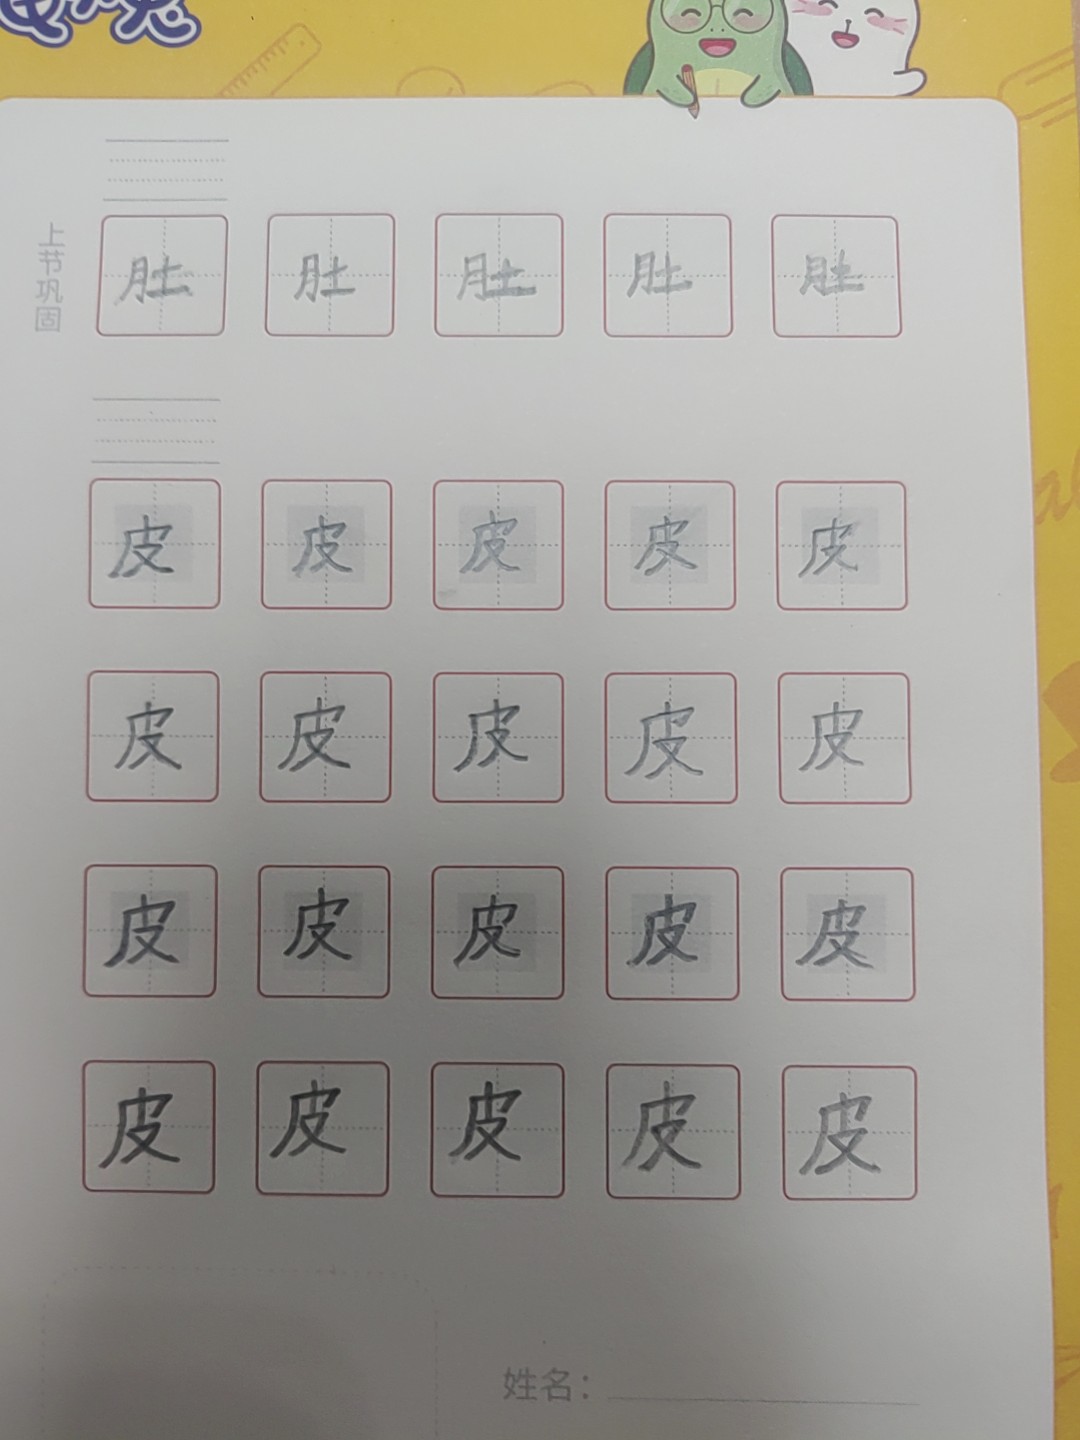 上节巩固
肚 肚 肚 肚 肚
皮 皮 皮 皮 皮
皮 皮 皮 皮 皮
皮 皮 皮 皮 皮
皮 皮 皮 皮 皮
姓名：